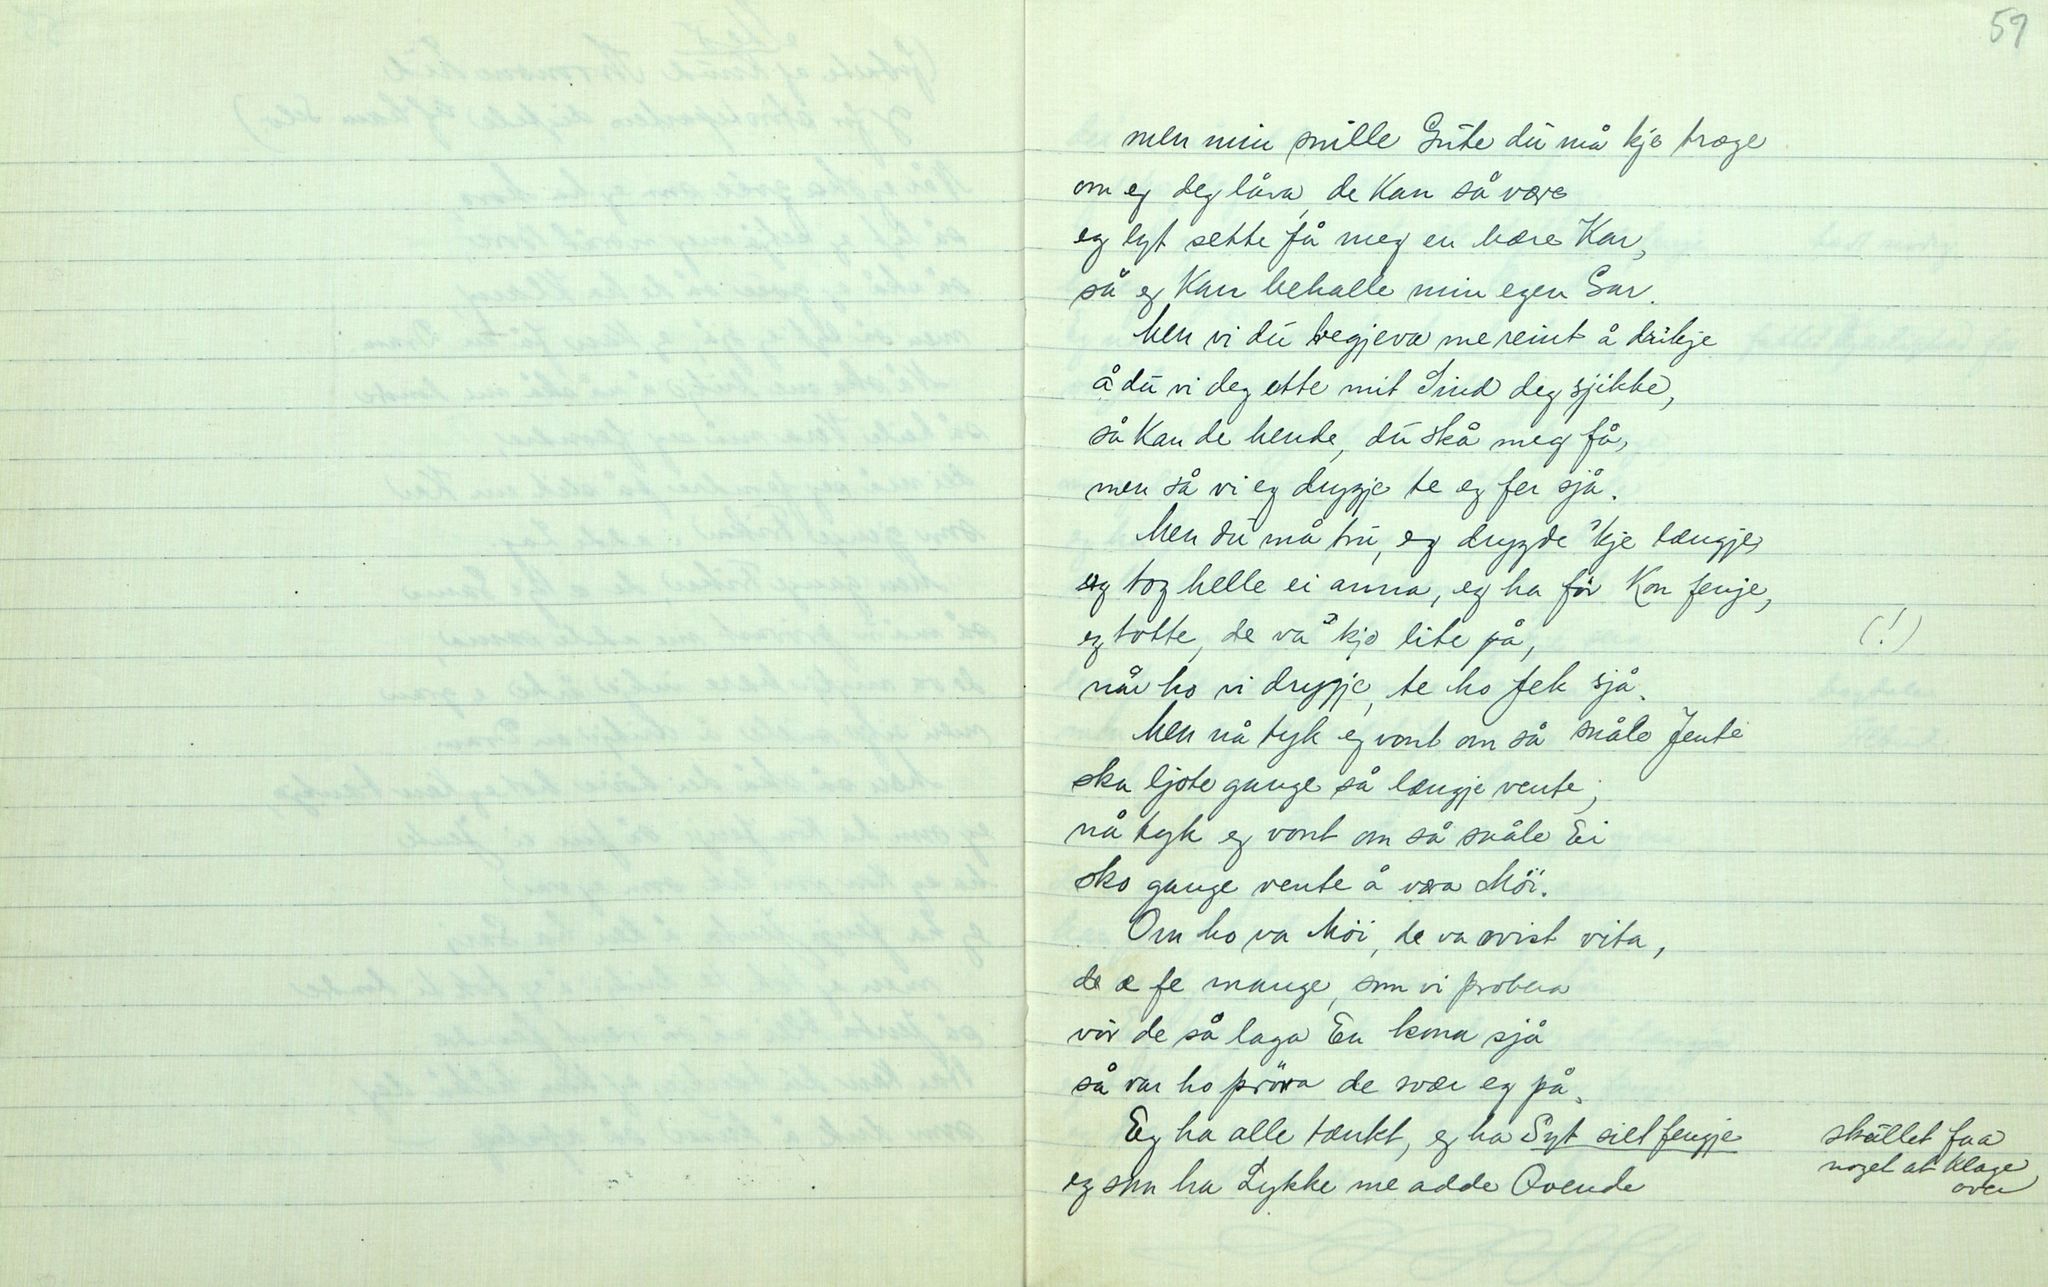 59
men min snille Gute du må kje træge
om eg deg låva, de Kan så være
eg lyt sette få meg en bære Kar,
så eg Kan behalle min egen Gar.
Men vi du begjeva me reint å drikje
å du vi deg ette mit Sind deg sjikke,
så Kan de hende, du skå meg få,
men så vi eg drygje te eg fer sjå.
Men du må tru, eg drygde 'kje længje,
eg tog helle ei anna, eg ha för Kon fenje,
eg totte, de va 'kje lite på, (!)
når ho vi drygje, te ho fek sjå.
Men nå tyk eg vont om så snåle Jente
ska ljote gange så længje vente;
nå tyk eg vont om så snåle Ei
sko gange vente å væra Möi.
Om ho va Möi, de va ovist vita,
de æ fe mange, som vi probera
vör de så laga En kona sjå
så var ho pröva de svær eg på.
Eg ha alle tænkt, eg ha Syt silt fengje
skullet faa
noget at klage
over
eg som ha Lykke me adde Qvende